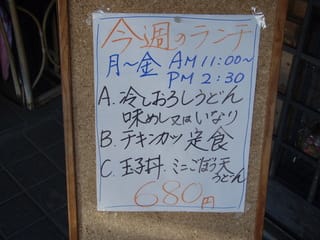 今週のランチ
月～金 AM 11:00～
PM 2:30
A. 冷しおろしうどん
味めし又はいなり
B. チキンカツ定食
C. 玉子丼・ミニごぼう天
うどん
680円